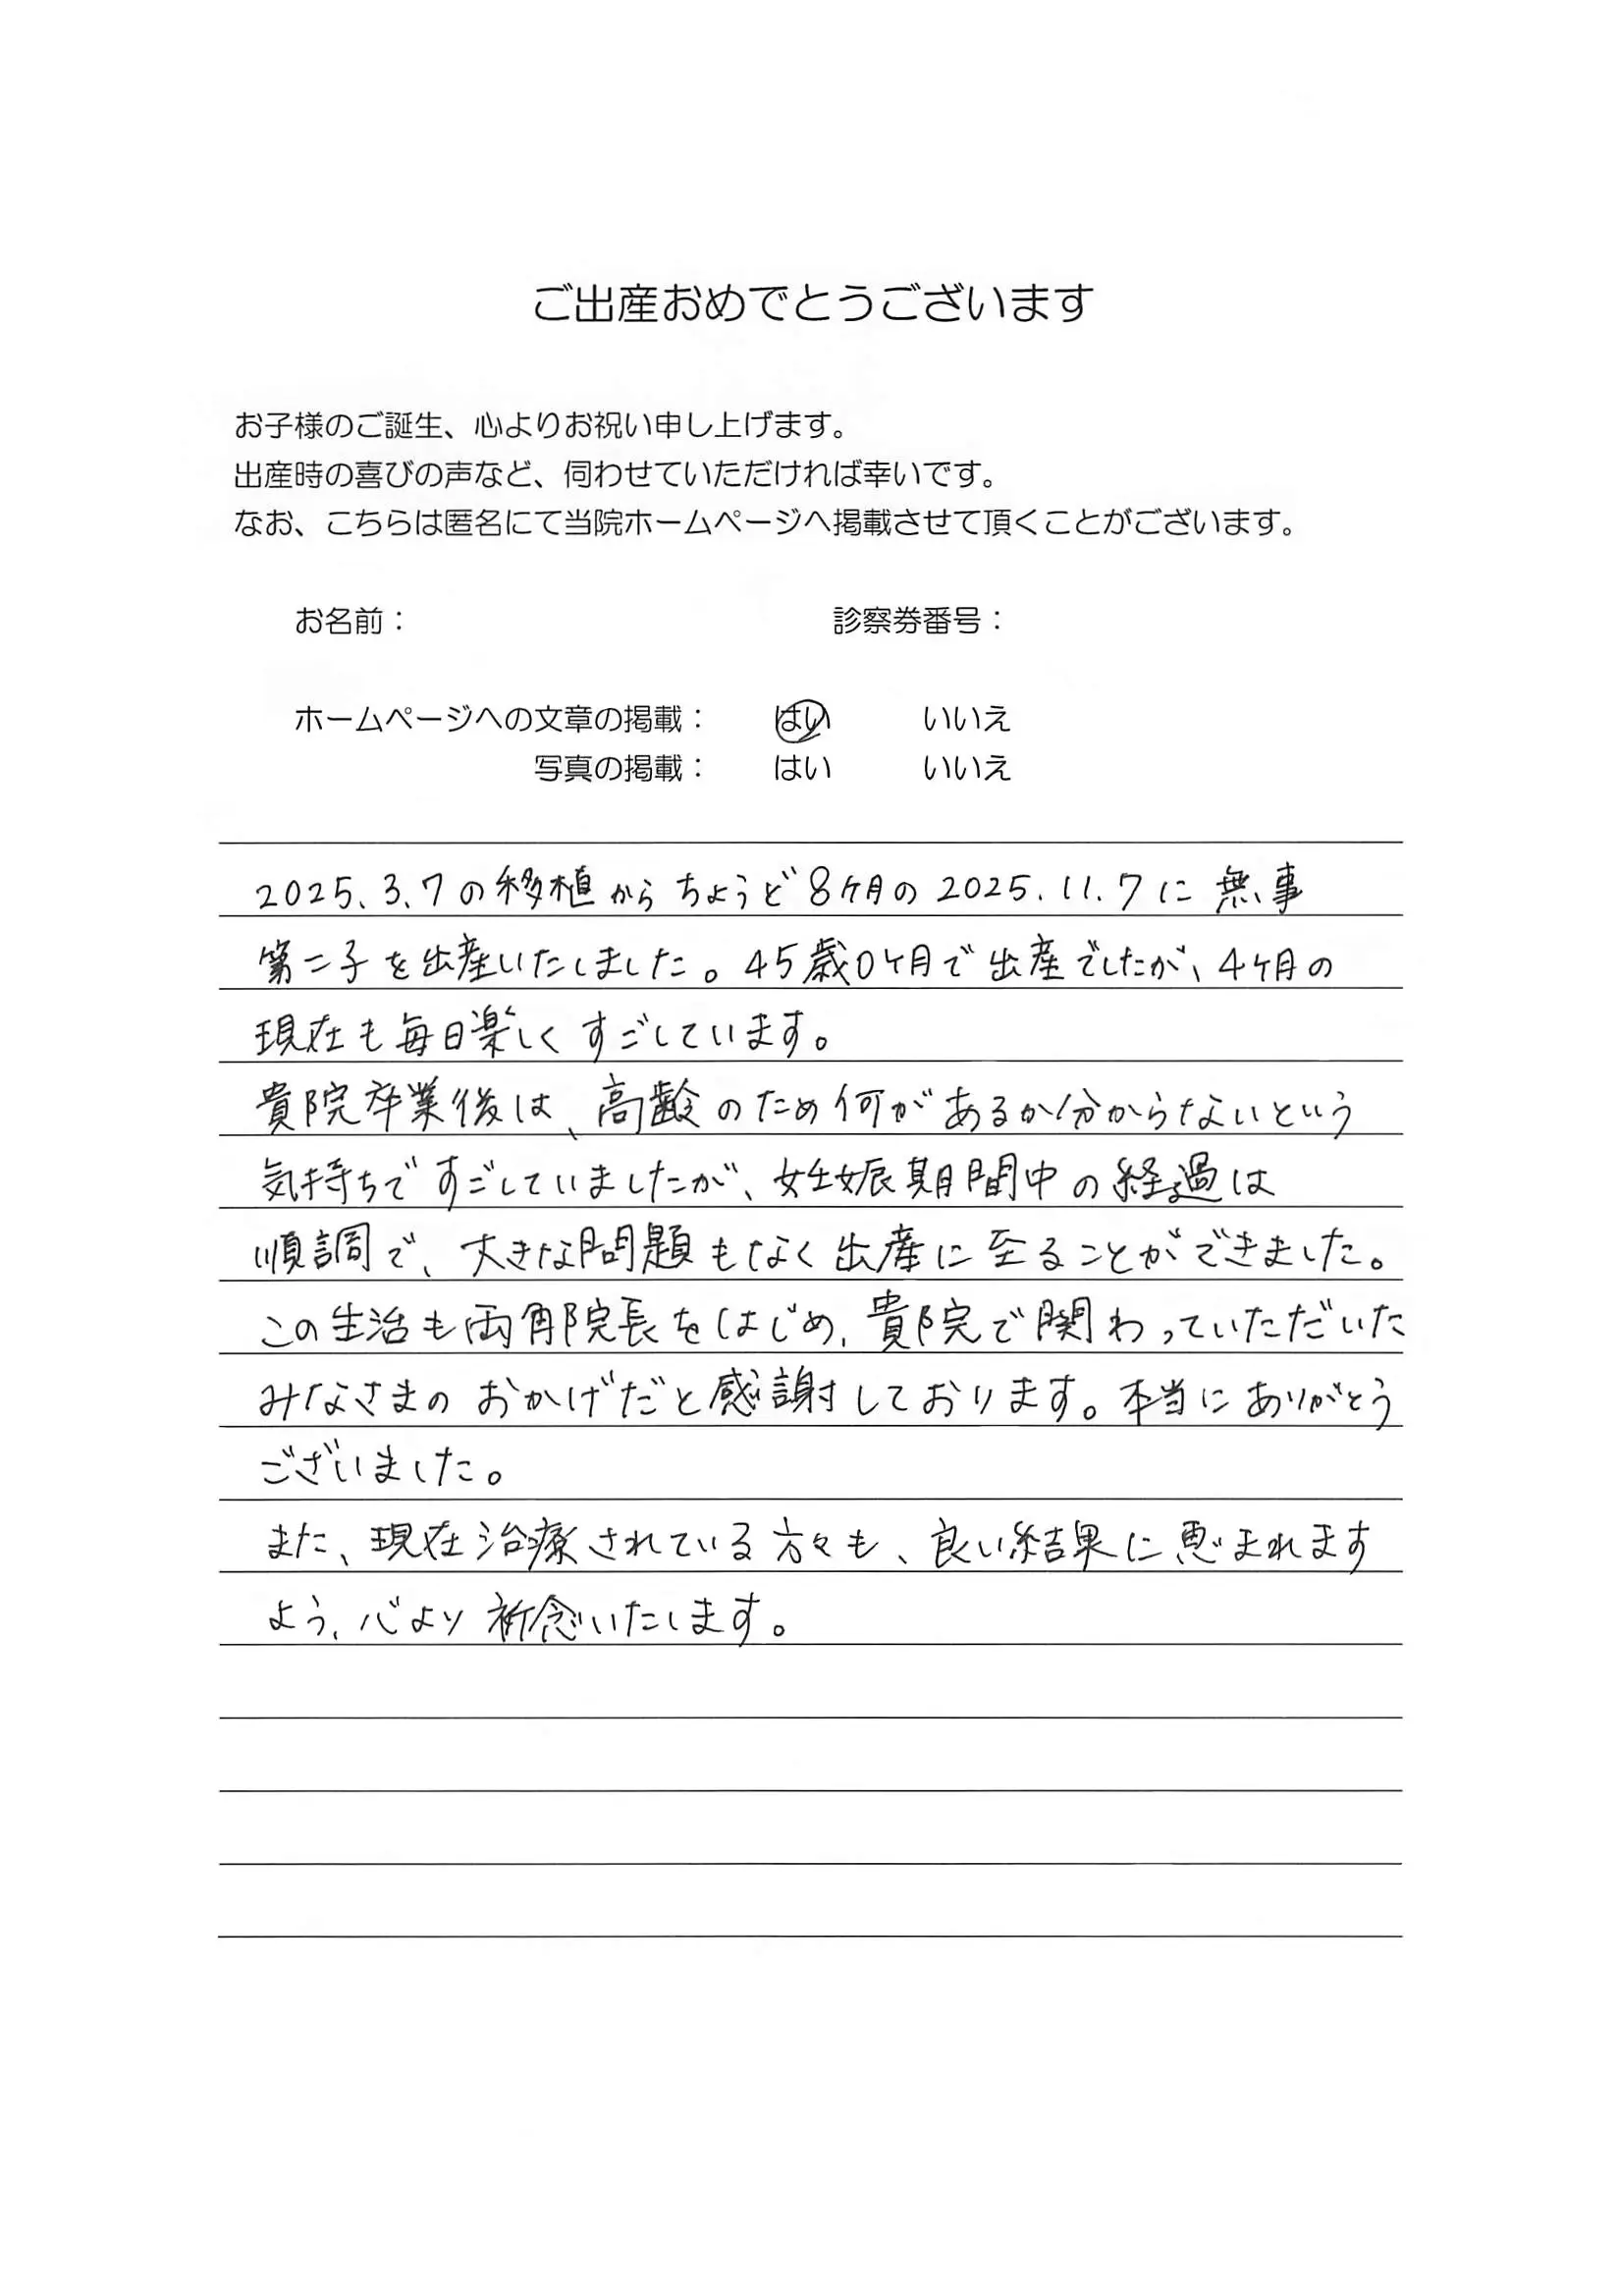 ご出産おめでとうございます
お子様のご誕生、心よりお祝い申し上げます。
出産時の喜びの声など、伺わせていただければ幸いです。
なお、こちらは匿名にて当院ホームページへ掲載させて頂くことがございます。
お名前： 診察券番号：
ホームページへの文章の掲載： はい いいえ
写真の掲載： はい いいえ
2025.3.7の移植からちょうど8ケ月の2025.11.7に無事
第二子を出産いたしました。45歳0ケ月で出産でしたが、4ケ月の
現在も毎日楽しくすごしています。
貴院卒業後は、高齢のため何があるか分からないという
気持ちですごしていましたが、妊娠期間中の経過は
順調で、大きな問題もなく出産に至ることができました。
この生活も両角院長をはじめ、貴院で関わっていただいた
みなさまのおかげだと感謝しております。本当にありがとう
ございました。
また、現在治療されている方々も、良い結果に恵まれます
よう、心より祈念いたします。